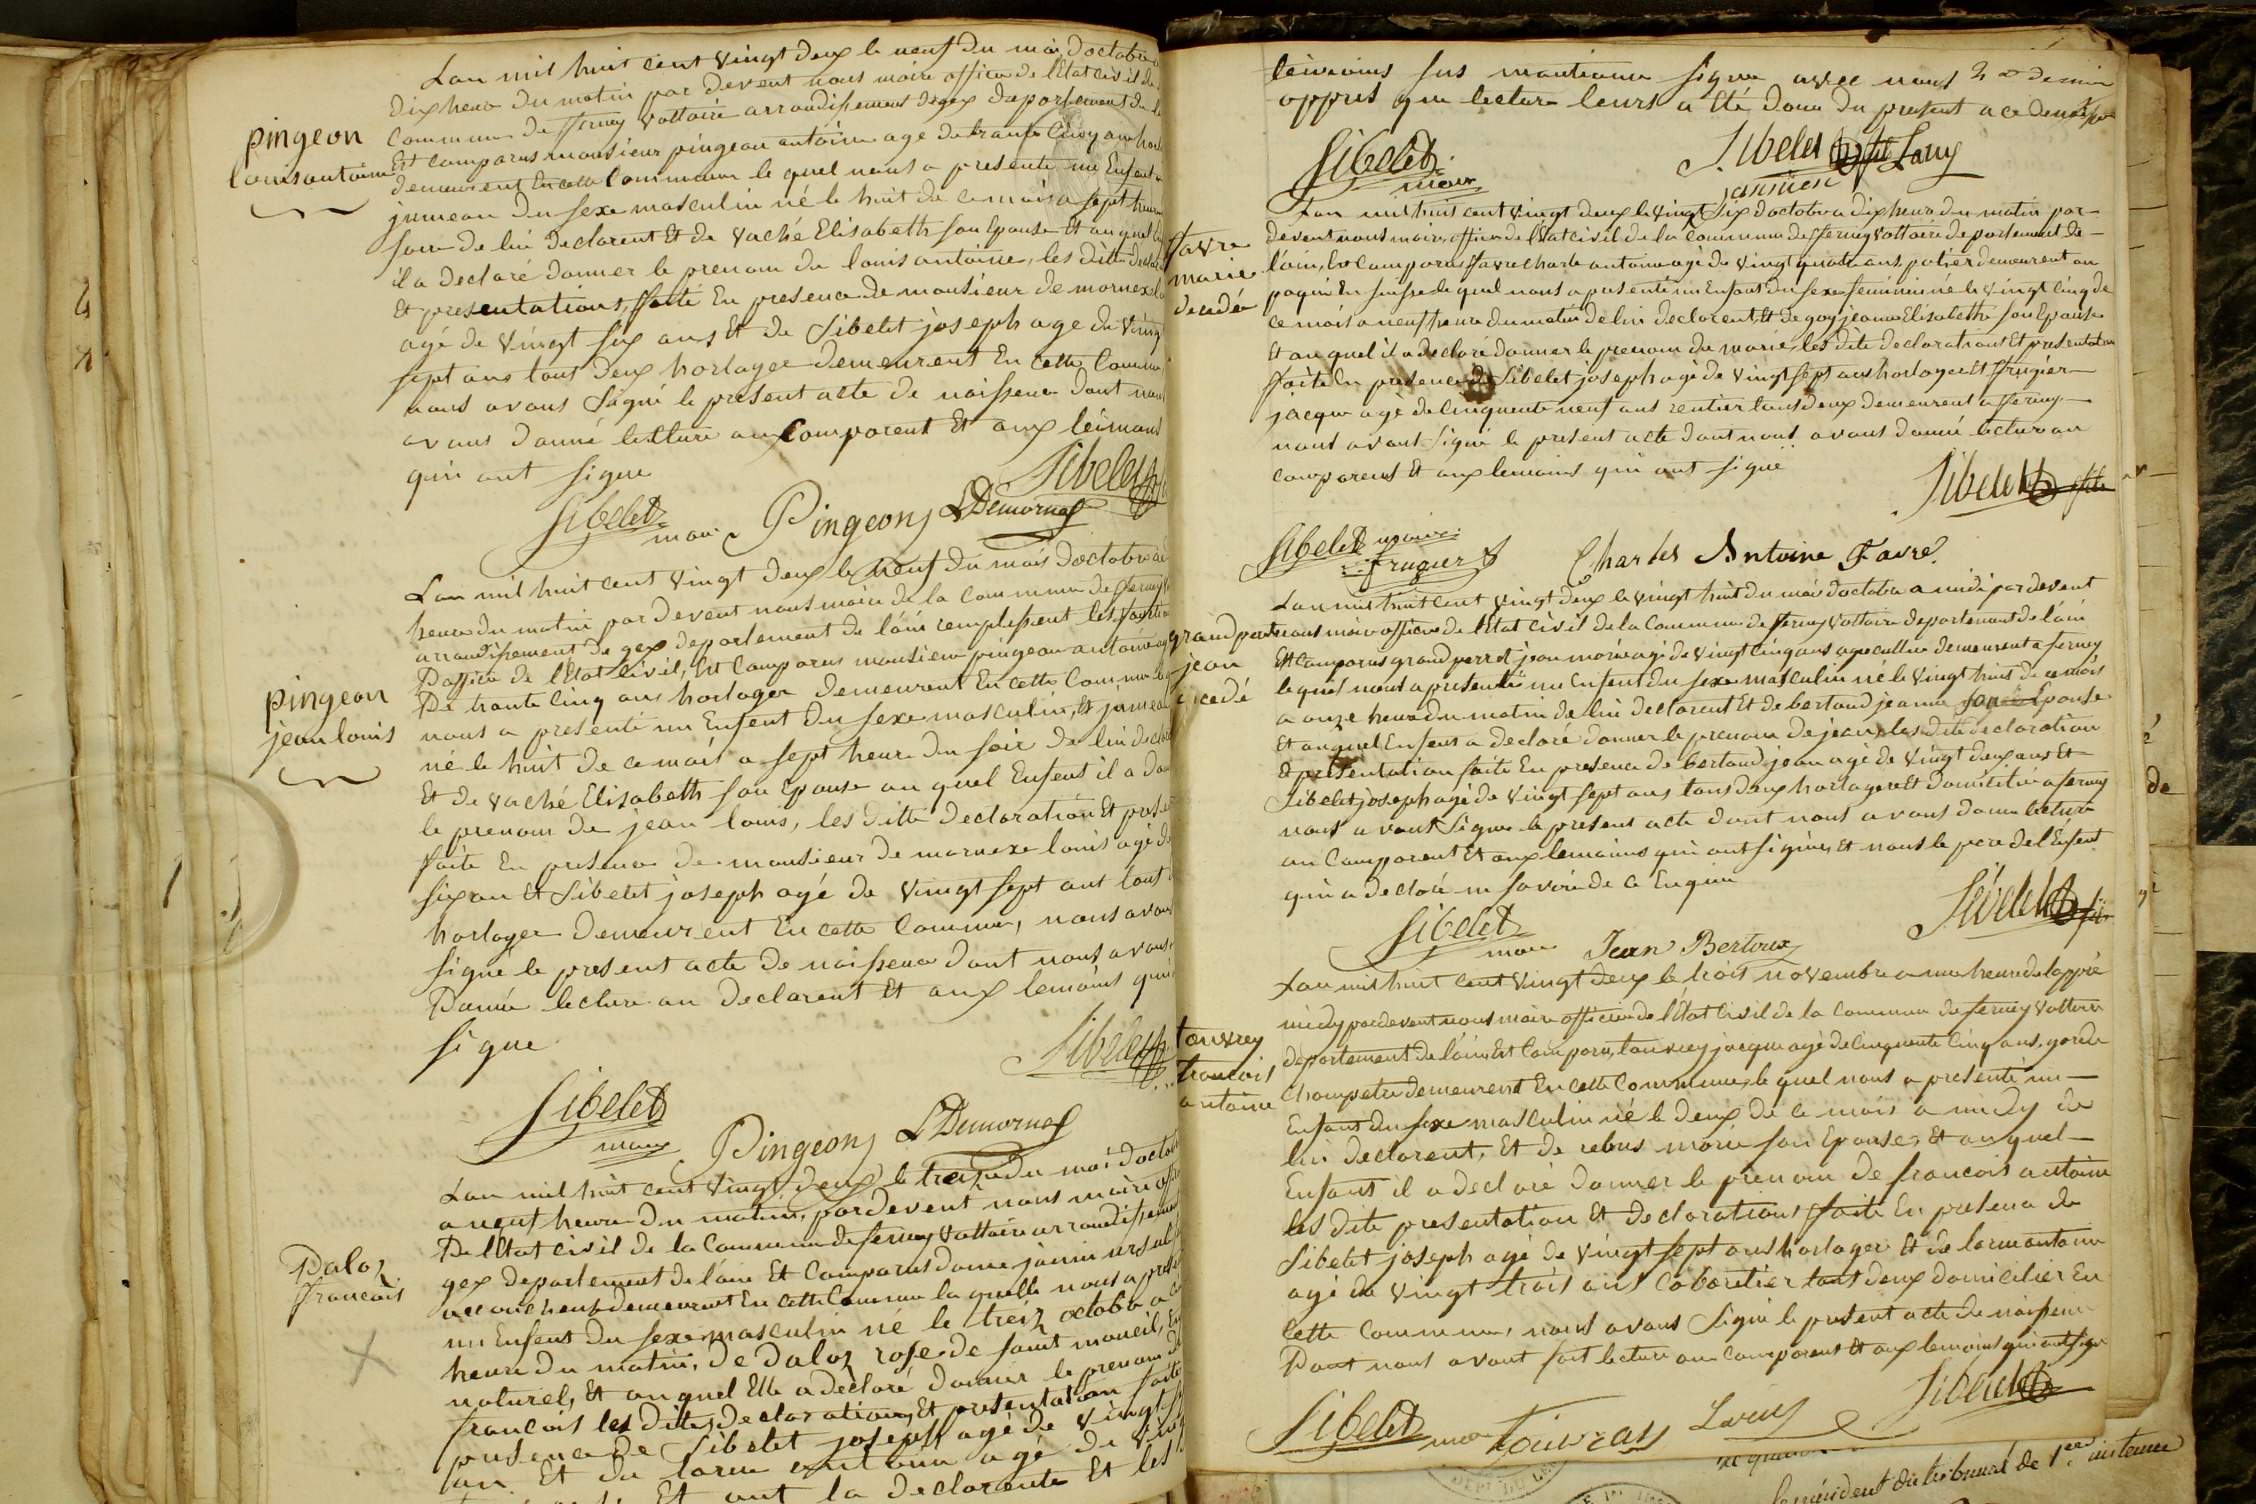 Lan mil huit cent vingt deux le neuf du moi doctobre
dix heur du matin par devent nous maire officie de l'Etat civil de
commune de fferney voltaire arrondissement de gex departement de
pingeon
louis antoine
Est comparus monsieur pingeon antoine age de trante cinq ans
demeurent en cette commune le quel nous a presente un Enfent
jumeau du sexe masculin né le huit de ce mois a sept heur
soir de lui declarent Et de vaché Elisabeth son Epouse Et au quel
il a declaré donner le prenom de louis antoine, les ditte
Et presentations, ffaite En presence de monsieur de mornex
agé de vingt six ans Et de Sibelet joseph age de vingt
sept ans tous deux horloger demeurent En cette Commune
nous avons Signé le present acte de naissence dont nous
avons donné lecture au Comparent Et aux témoins
qui ont signe
Sibelet
Sibelet
maire
Pingeon
L Demornex
Lan mil huit cent vingt deux le neuf du mois doctobre
heure du matin par devent nous maire de la commune de ferney
arrondissement de gex departement de l'ain remplissent les
D'officie de l'Etat civil, Est Comparus monsieur pingeon antoine
pingeon
jean louis
De trante cinq ans horloger demeurent En cette Commune
nous a presenté un Enfent du sexe masculin, Et jumeau
né le huit de ce mois a sept heur du soir de lui
Et de vaché Elisabeth son Epouse au quel Enfent il a
le prenom de jean louis, les ditte declaration Et
faite En presence de monsieur de mornexe louis agé de
six an Et Sibelet joseph agé de vingt sept ant tout
horloger demeurent En cette Commune, nous avons
signé le present acte de naissence dont nous avons
Donné lecture au declarent Et aux temoins qui
signe
Sibelet
Sibelet
maire
Pingeon
L Demornex
Lan mil huit cent vingt deux le treize du moi
a neuf heure du matin, par devent nous maire
De l'Etat civil de la Commune de ferney voltaire arrondissement
gex departement de l'ain Est Comparus Dame
Daloz
francois
accoucheuse demeurent En cette Commune la quelle nous a
un Enfent du sexe masculin né le treiz octobre a
heure du matin, de Daloz rose de saint
naturel, Et au quel Elle a declaré donner le prenom de
francois les dites declaration, Et presentation faite
presence de Sibelet joseph agé de vingt
an. Et de agé de
Et ont la declarente Et les
temoins sus mentionne signe avec nous
appres que lecture leurs a été donné du present acte
Sibelet
maire
Sibelet fils Larmy
Lan mil huit cent vingt deux le vingt six doctobre a dix heur du matin par
devent nous maire officie de l'Etat civil de la Commune de fferney voltaire departement de
favre
marie
decedé
l'ain, Est Comparus ffavre charle antoine agé de vingt quatre ans, potier demeurent au
En suisse le quel nous a presenté un Enfent du sexe feminin né le vingt cinq de
ce mois a neuf heure du matin de lui declarent, Et de goy jeanne Elisabeth son Epouse
Et au quel il a declaré donner le prenom de marie, les dite declarations Et presentation
ffaite En presence de Sibelet joseph agé de vingt sept ans horloger Et frugier
jacque agé de cinquente neuf ans rentier tous deux demeurent a fferney
nous avons signé le present acte dont nous avons donné lecture au
comparens Et aux temoins qui ont signé
Sibelet fils
Sibelet maire
frugier
Charles Antoine Favre
Lan mil huit cent vingt deux le vingt huit du mois doctobre a midi par devent
nous maire officie de l'Etat civil de la Commune de fferney voltaire departement de l'ain
grand perret
jean
decedé
Est Comparus grand perret jean marie agé de vingt cinq ans demeurent a ferney
le quel nous a presenté un Enfent du sexe masculin né le vingt huit de ce mois
a onze heure du matin de lui declarent Et de bertoud jeanne son Epouse
Et au quel Enfent a declaré donner le prenom de jean, les ditte declaration
Et presentation faite En presence de bertoud jean agé de vingt deux ans Et
Sibelet joseph agé de vingt sept ans tous deux horloger Et domicilié a ferney
nous avons signe le present acte dont nous avons donne lecture
au Comparent Et aux temoins qui ont signé, Et nous le pere de l'Enfent
qui a declaré ne savoir de ce Enquis
Sibelet fils
Sibelet
maire
Jean Bertoux
Lan mil huit cent vingt deux le trois novembre a une heure de lappré
midy par devent nous maire officie de l'Etat civil de la Commune de ferney voltaire
touvrey
francois
antoine
departement de l'ain, Est Comparu, touvrey jacque agé de cinquente cinq ans, garde
champetre demeurent En cette Commune, le quel nous a presenté un
Enfent du sexe masculin né le deux de ce mois a midy de
lui declarent, Et de rebus marie son Epouse, Et au quel
Enfent il a declaré donner le prenom de francois antoine
les dite presentation Et declarations ffaite En presence de
Sibelet joseph agé de vingt sept ans horloger Et de
agé de vingt trois ans cabaretier tout deux domicilier En
Cette Commune, nous avons Signé le present acte de naissence
Dont nous avont fait lecture au comparent Et aux temoins qui ont signe
Sibelet
Sibelet maire
Touvray
Larmy
du tribunal de 1ere instance